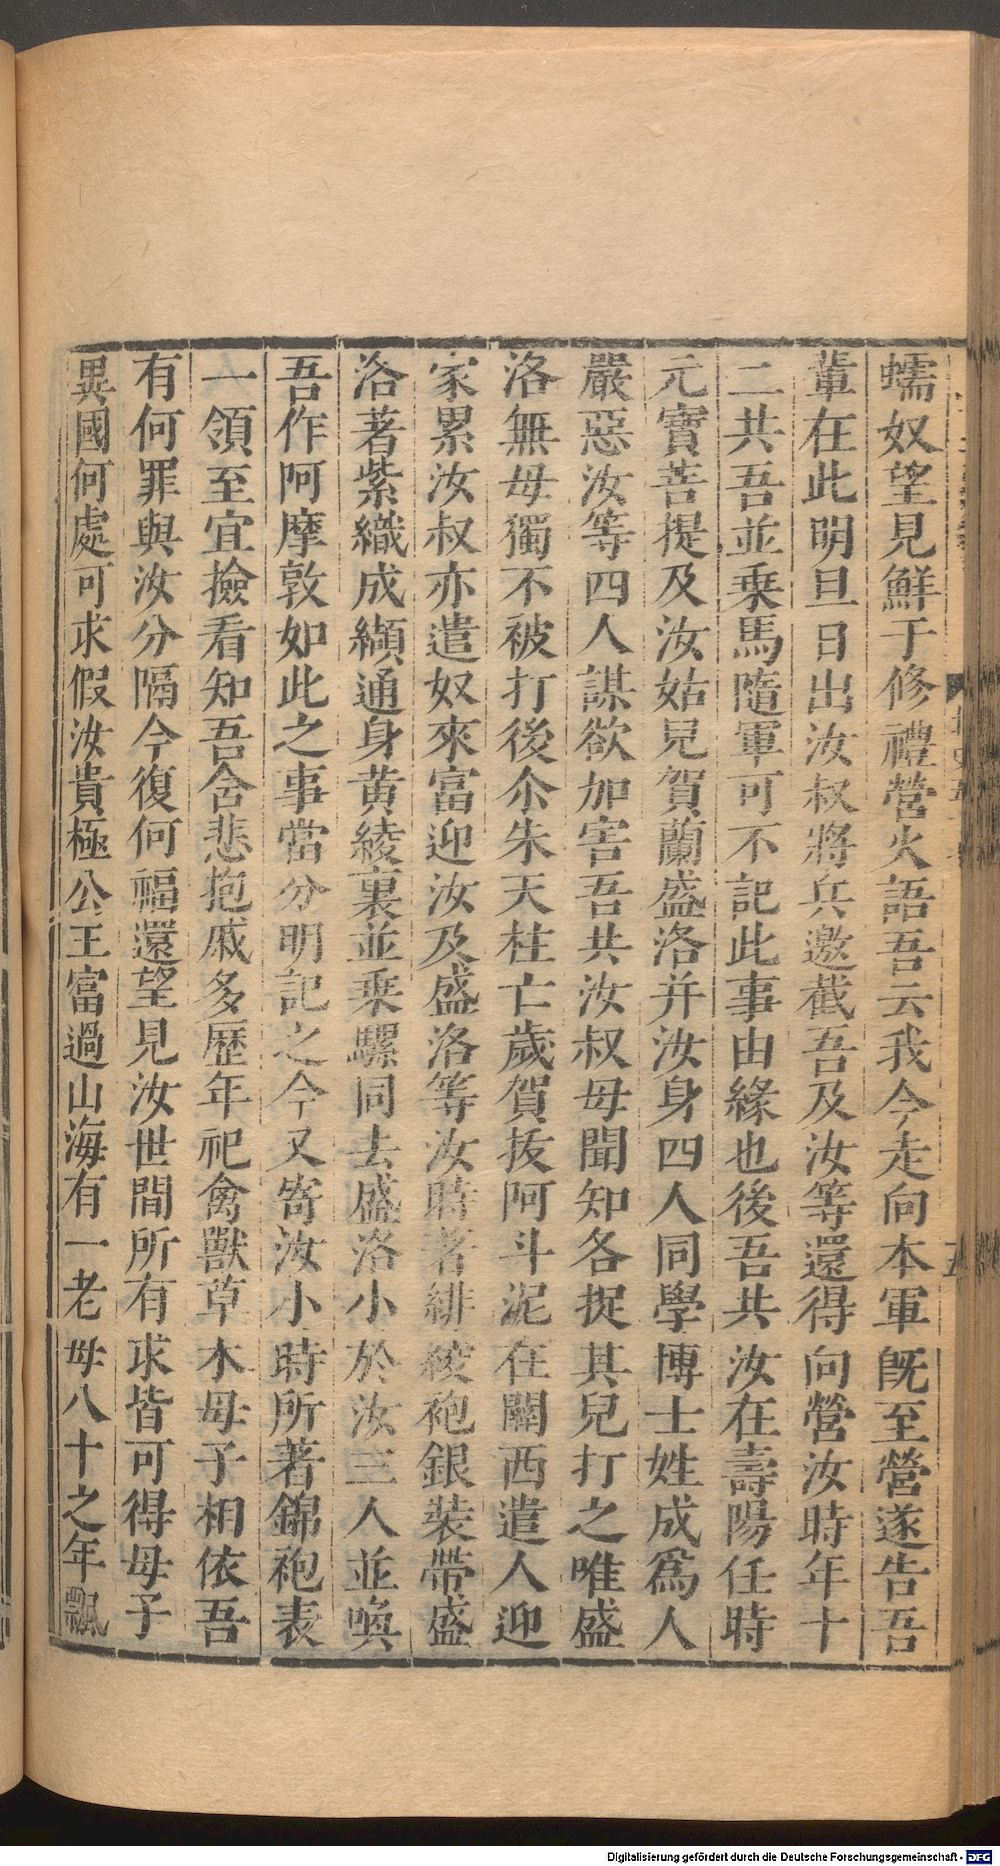 蠕奴望見鮮于修禮營火語吾云我今走向本軍旣至營遂告吾
輩在此明旦日出汝叔將兵邀截吾及汝等還得向營汝時年十
二共吾並乗馬隨軍可不記此事由緣也後吾共汝在壽陽任時
元寳菩提及汝姑兒賀蘭盛洛并汝身四人同學博士姓成爲人
嚴惡汝等四人謀欲加害吾共汝叔母聞知各捉其兒打之唯盛
洛無母獨不被打後尒朱天柱亡歲賀抜阿斗泥在關西遣人迎
家累汝叔亦遣奴來富迎汝及盛洛等汝時著緋綾袍銀裝帶盛
洛著紫織成纈通身黄綾裏並乗騾同去盛洛小於汝三人並喚
吾作阿摩敦如此之事當分明記之今又寄汝小時所著錦袍表
一領至宜撿看知吾含悲抱戚多歷年祀禽獸草木母子相依吾
有何罪與汝分隔今復何福還望見汝世間所有求皆可得母子
異國何處可求假汝貴極公王富過山海有一老母八十之年飄
五
Digitalisierung gefördert durch die Deutsche Forschungsgemeinschaft - DFG